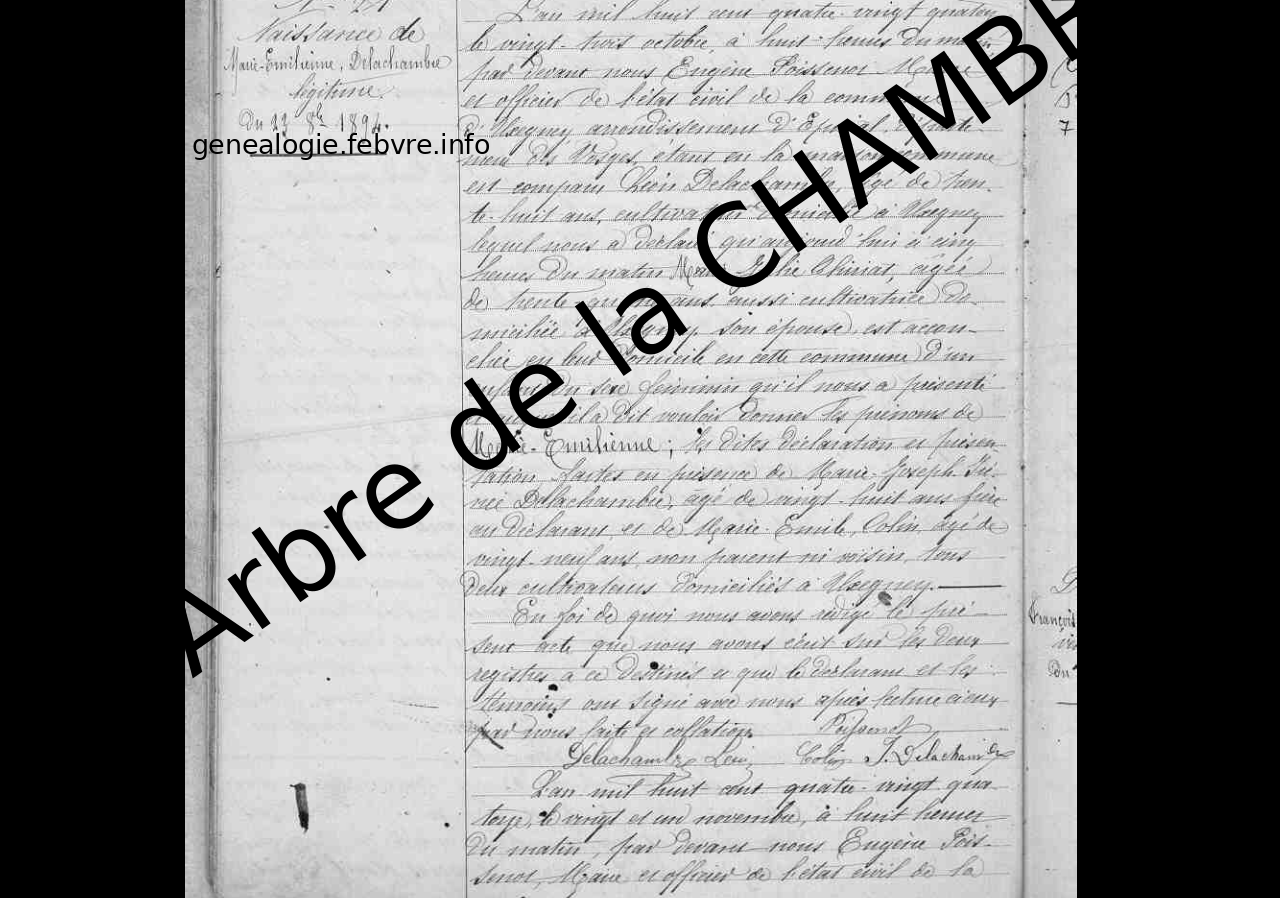 Naissance de
Marie-Emilienne, Delachambre
légitime
Du 23 8bre 1894.
genealogie.febvre.info
Arbre de la CHAMBR
L'an mil huit cent quatre-vingt quator
le vingt-trois octobre, à huit heures du matin
par devant nous Eugène Poissenot Maire
et officier de l'état civil de la commune
d'Uxegney arrondissement d'Epinal, départe-
ment des Vosges, étant en la maison commune
est comparu Léon Delachambre, âgé de tren-
te-huit ans, cultivateur domicilié à Uxegney
lequel nous a déclaré qu'aujourd'hui à cinq
heures du matin Marie Julie Thiriat, âgée
de trente ans, aussi cultivatrice do-
miciliée à Uxegney, son épouse, est accou-
chée en leur domicile en cette commune d'un
enfant du sexe féminin qu'il nous a présenté
et auquel il a dit vouloir donner les prénoms de
Marie-Emilienne; les dites déclaration et présen
tation faites en présence de Marie-Joseph
Delachambre, âgé de vingt-huit ans frère
au déclarant, et de Marie-Emile, Colin âgé de
vingt-neuf ans, non parent ni voisin, tous
deux cultivateurs domiciliés à Uxegney.
En foi de quoi nous avons rédigé le pré-
sent acte que nous avons écrit sur les deux
registres à ce destinés et que le déclarant et les
témoins ont signé avec nous après lecture à eux
par nous faite et collation. Poissenot
Delachambre Léon, Colin J. Delachambre
L'an mil huit cent quatre-vingt qua-
torze, le vingt et un novembre, à huit heures
du matin, par devant nous Eugène Pois-
senot, Maire et officier de l'état civil de la
François
du
7